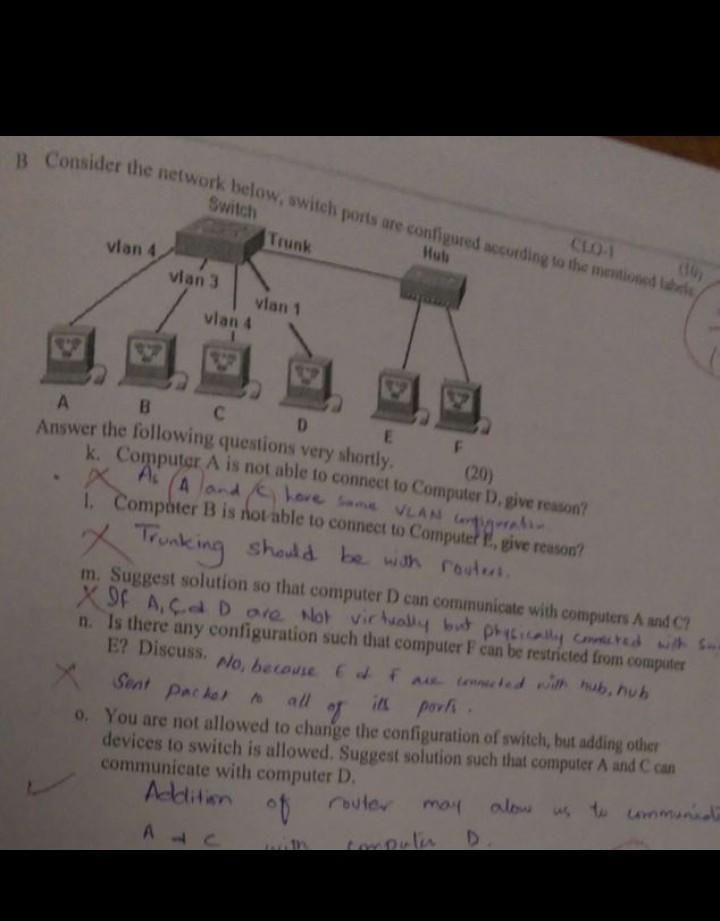 B Consider the network below, switch ports are configured according to the mentioned labels
CLO-1 (10)
Switch
Trunk
Hub
vlan 4
vlan 3
vlan 4
vlan 1
A B C D E F
Answer the following questions very shortly. (20)
k. Computer A is not able to connect to Computer D, give reason?
As A and C have same VLAN configuration
l. Computer B is not able to connect to Computer E, give reason?
Trunking should be with routers.
m. Suggest solution so that computer D can communicate with computers A and C?
If A, C and D are Not virtually but physically connected with
n. Is there any configuration such that computer F can be restricted from computer
E? Discuss. No, because E and F are connected with hub, hub
Sent packet to all of its ports.
o. You are not allowed to change the configuration of switch, but adding other
devices to switch is allowed. Suggest solution such that computer A and C can
communicate with computer D.
Addition of router may alow us to
A and C with computer D.